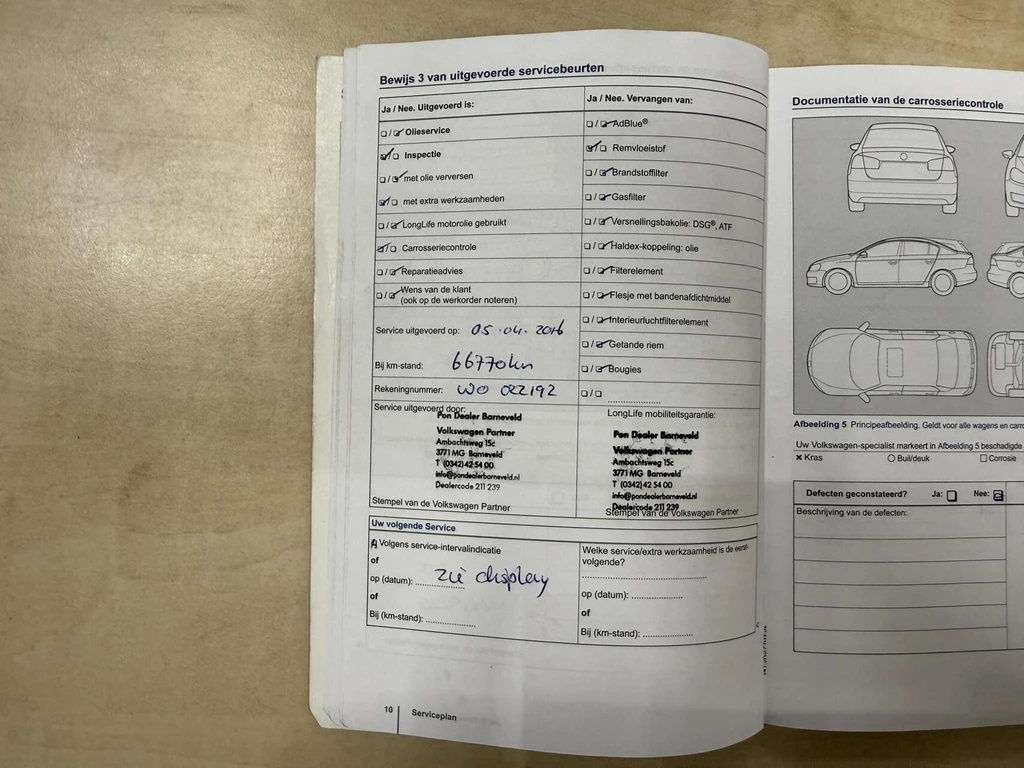 Bewijs 3 van uitgevoerde servicebeurten
Ja / Nee. Uitgevoerd is:
Olieservice
Inspectie
met olie verversen
met extra werkzaamheden
LongLife motorolie gebruikt
Carrosseriecontrole
Reparatieadvies
Wens van de klant
(ook op de werkorder noteren)
Ja / Nee. Vervangen van:
AdBlue®
Remvloeistof
Brandstoffilter
Gasfilter
Versnellingsbakolie: DSG®, ATF
Haldex-koppeling: olie
Filterelement
Flesje met bandenafdichtmiddel
Interieurluchtfilterelement
Getande riem
Bougies
Service uitgevoerd op: 05.04.2016
Bij km-stand: 66770km
Rekeningnummer: WO 022192
Service uitgevoerd door:
Pon Dealer Barneveld
Volkswagen Partner
Ambachtsweg 15c
3771 MG Barneveld
T (0342) 42 54 00
info@pondealerbarneveld.nl
Dealercode 211 239
Stempel van de Volkswagen Partner
LongLife mobiliteitsgarantie:
Pon Dealer Barneveld
Volkswagen Partner
Ambachtsweg 15c
3771 MG Barneveld
T (0342) 42 54 00
info@pondealerbarneveld.nl
Dealercode 211 239
Stempel van de Volkswagen Partner
Uw volgende Service
Volgens service-intervalindicatie
of
op (datum): zie display
of
Bij (km-stand):
Welke service/extra werkzaamheid is de eerst-
volgende?
op (datum):
of
Bij (km-stand):
10 Serviceplan
Documentatie van de carrosseriecontrole
Afbeelding 5 Principeafbeelding. Geldt voor alle wagens en
Uw Volkswagen-specialist markeert in Afbeelding 5 beschadigde
Kras Buil/deuk Corrosie
Defecten geconstateerd? Ja: Nee:
Beschrijving van de defecten: